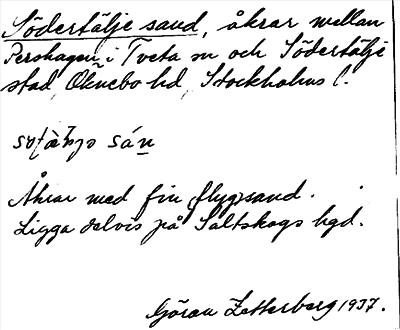 Södertälje sand, åkrar mellan
Pershagen i Tveta sn och Södertälje
stad, Öknebo hd, Stockholms l.
sá
Åkrar med fin flygsand.
Ligga delvis på Saltskogs hgd.
Göran Zetterberg 1937.